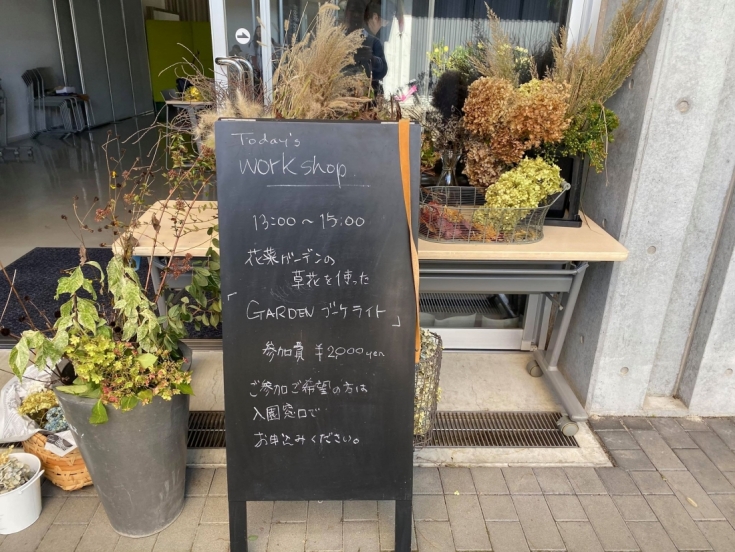 Today's
workshop
13:00～15:00
花菜ガーデンの
草花を使った
「GARDEN ブーケライト」
参加費 ¥2000yen
ご参加ご希望の方は
入園窓口で
お申込みください。